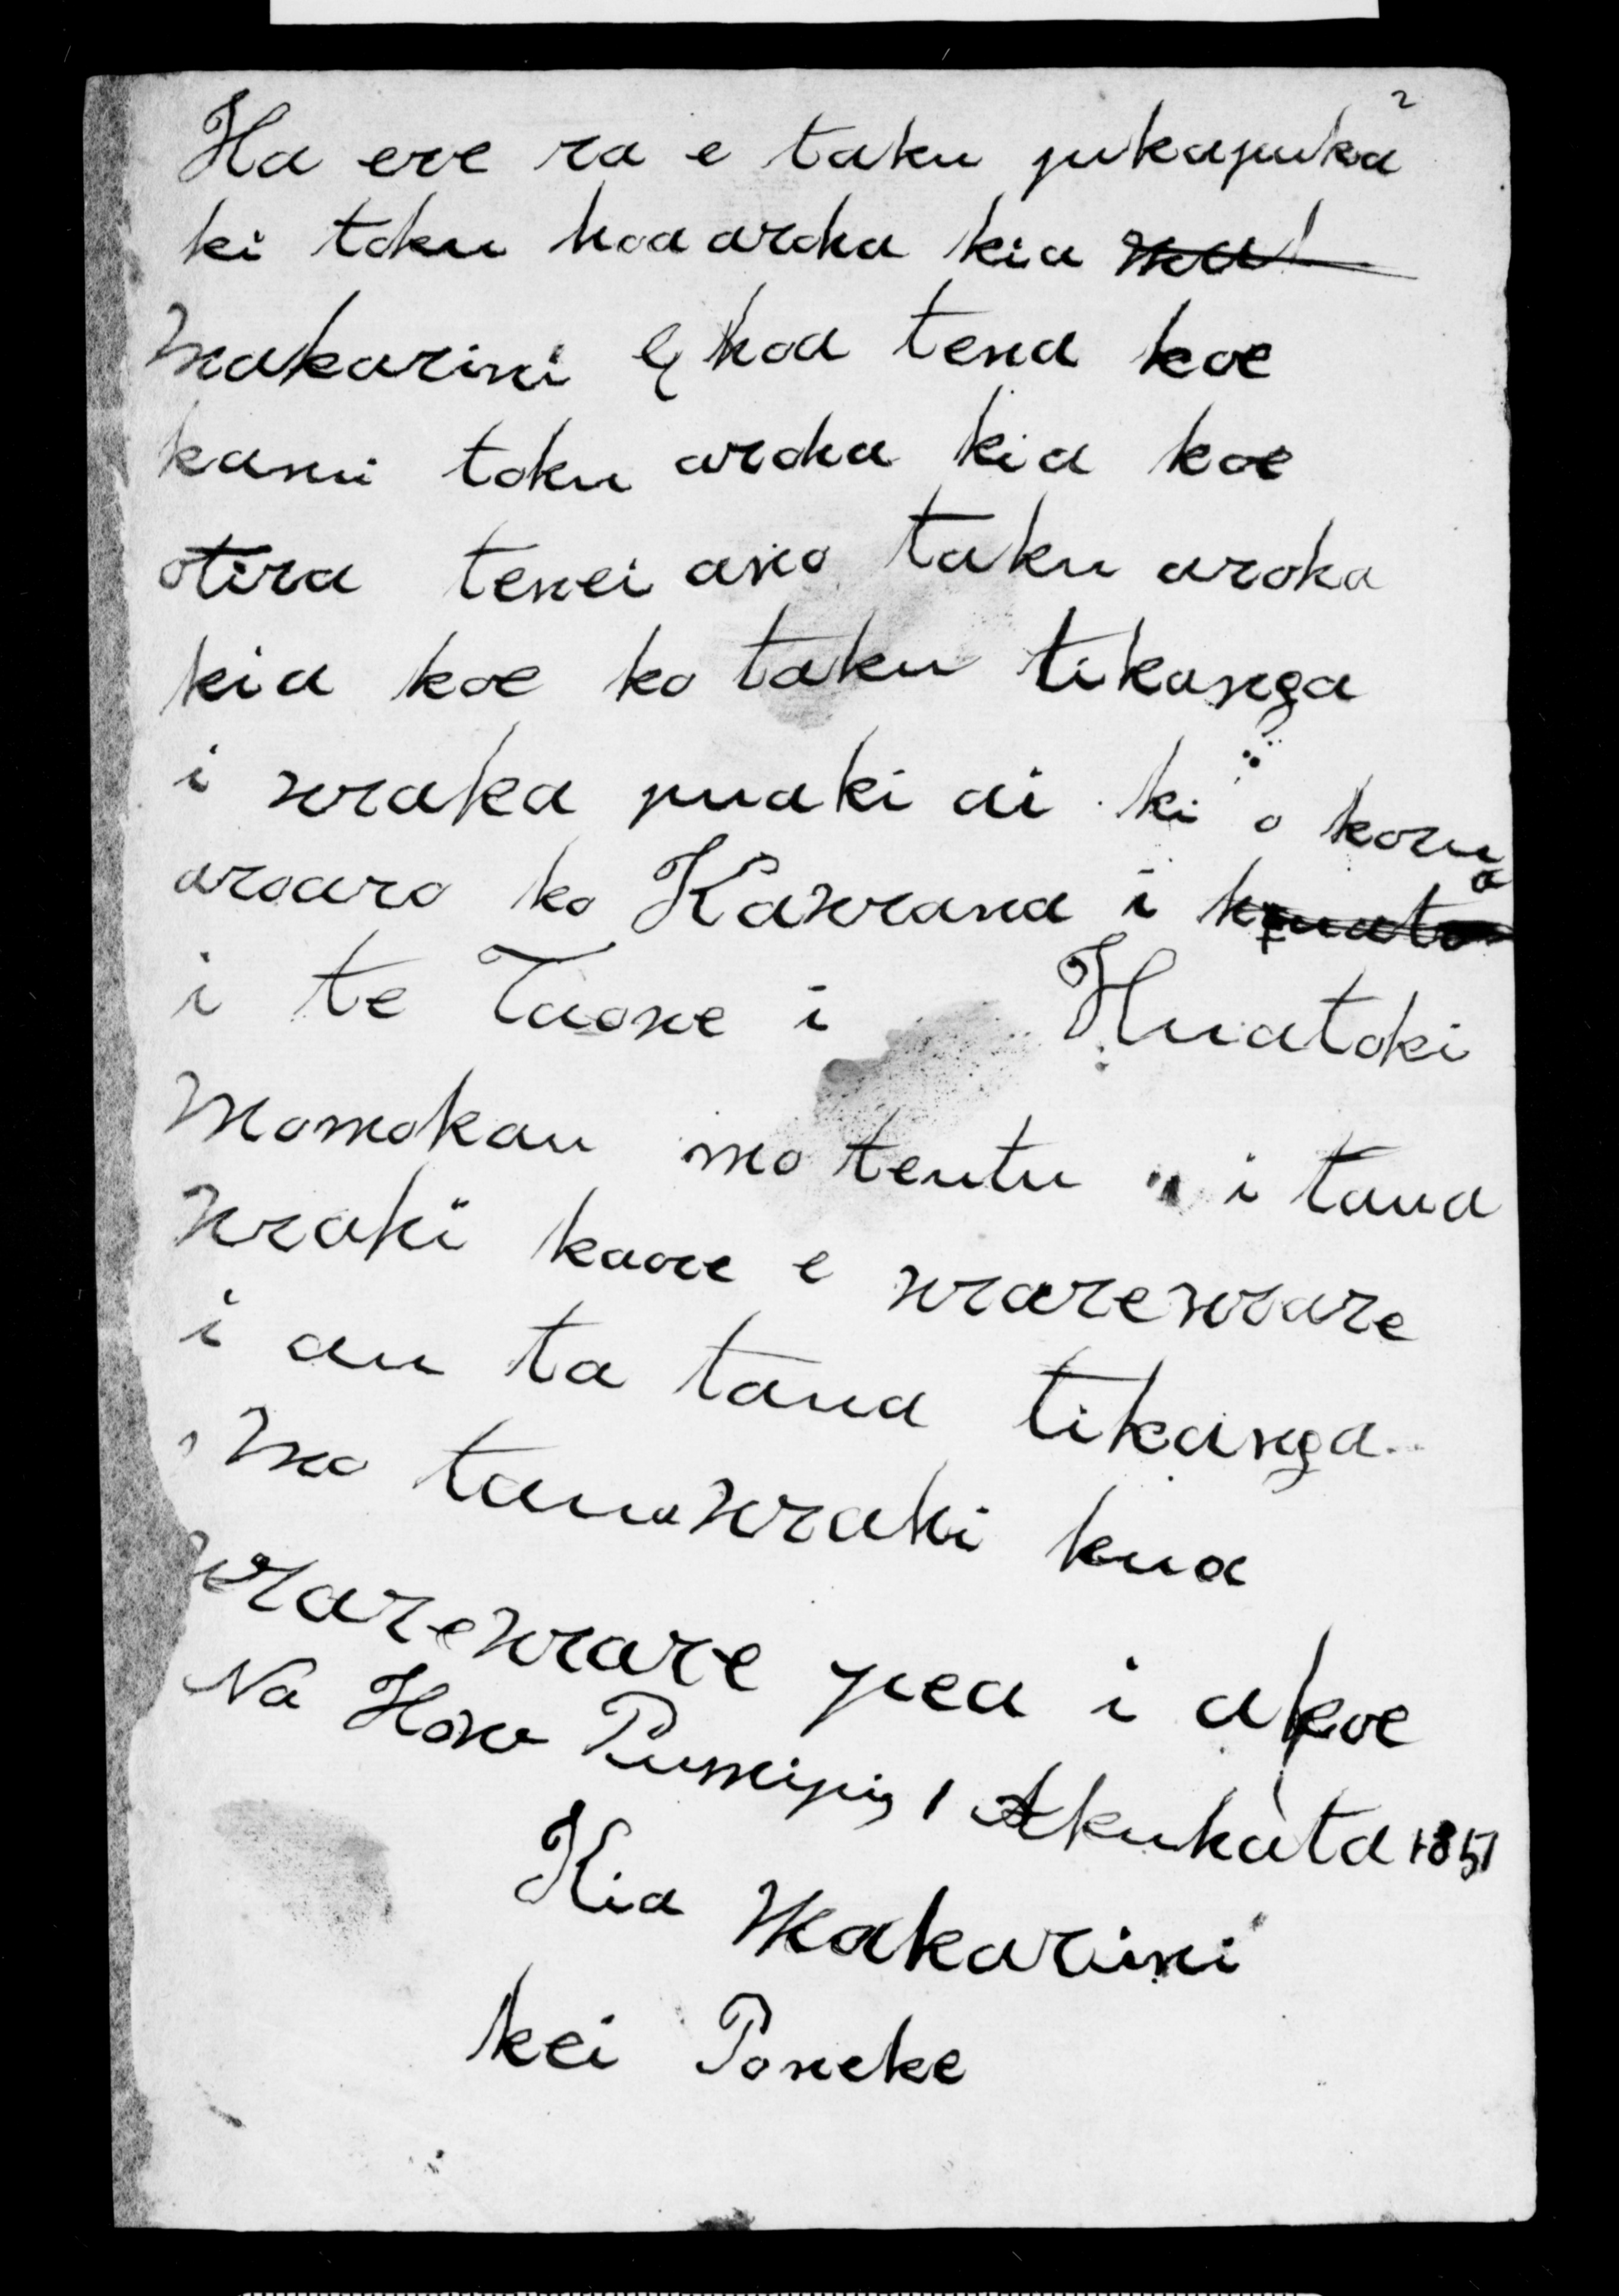 2
Ha ere ra e taku pukapuka
ki toku hoa aroha kia
Makarini E hoa tena koe
kanui toku aroha kia koe
otira tenei ano taku aroha
kia koe ko taku tikanga
i wraka puaki ai ki o korua
aroaro ko Kawrana i
i te Taone i Huatoki
Momokau mo teutu i taua
wraki kaore e wrarewrare
i au ta taua tikanga
mo taua wraki kua
wrarewrare pea i a koe
Na Hone 1 Akuhata 1851
Kia Makarini
kei Poneke